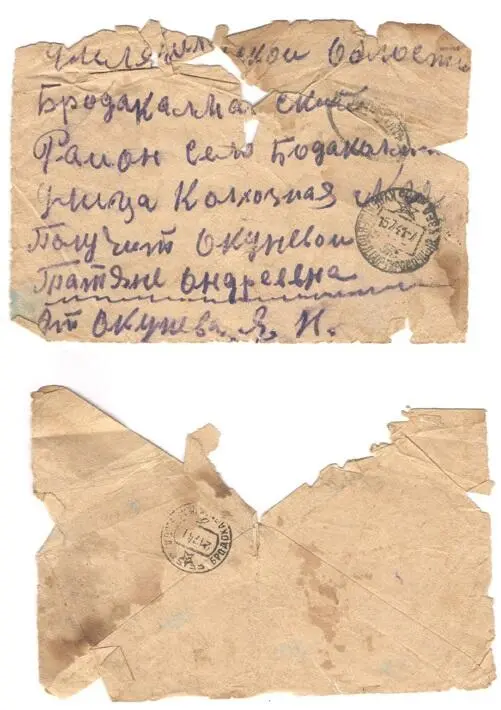 Челябинской Области
Бродакалмакский
Раион село Бодакалм
улица Колхозная №
Получит Окуневои
Татяне Андреевна
От Окунева Я. И.
БРОДОКАЛ